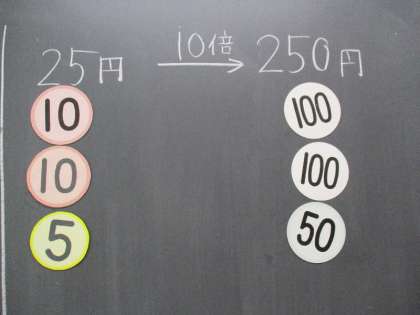 25円 10倍 250円
10 100
10 100
5 50